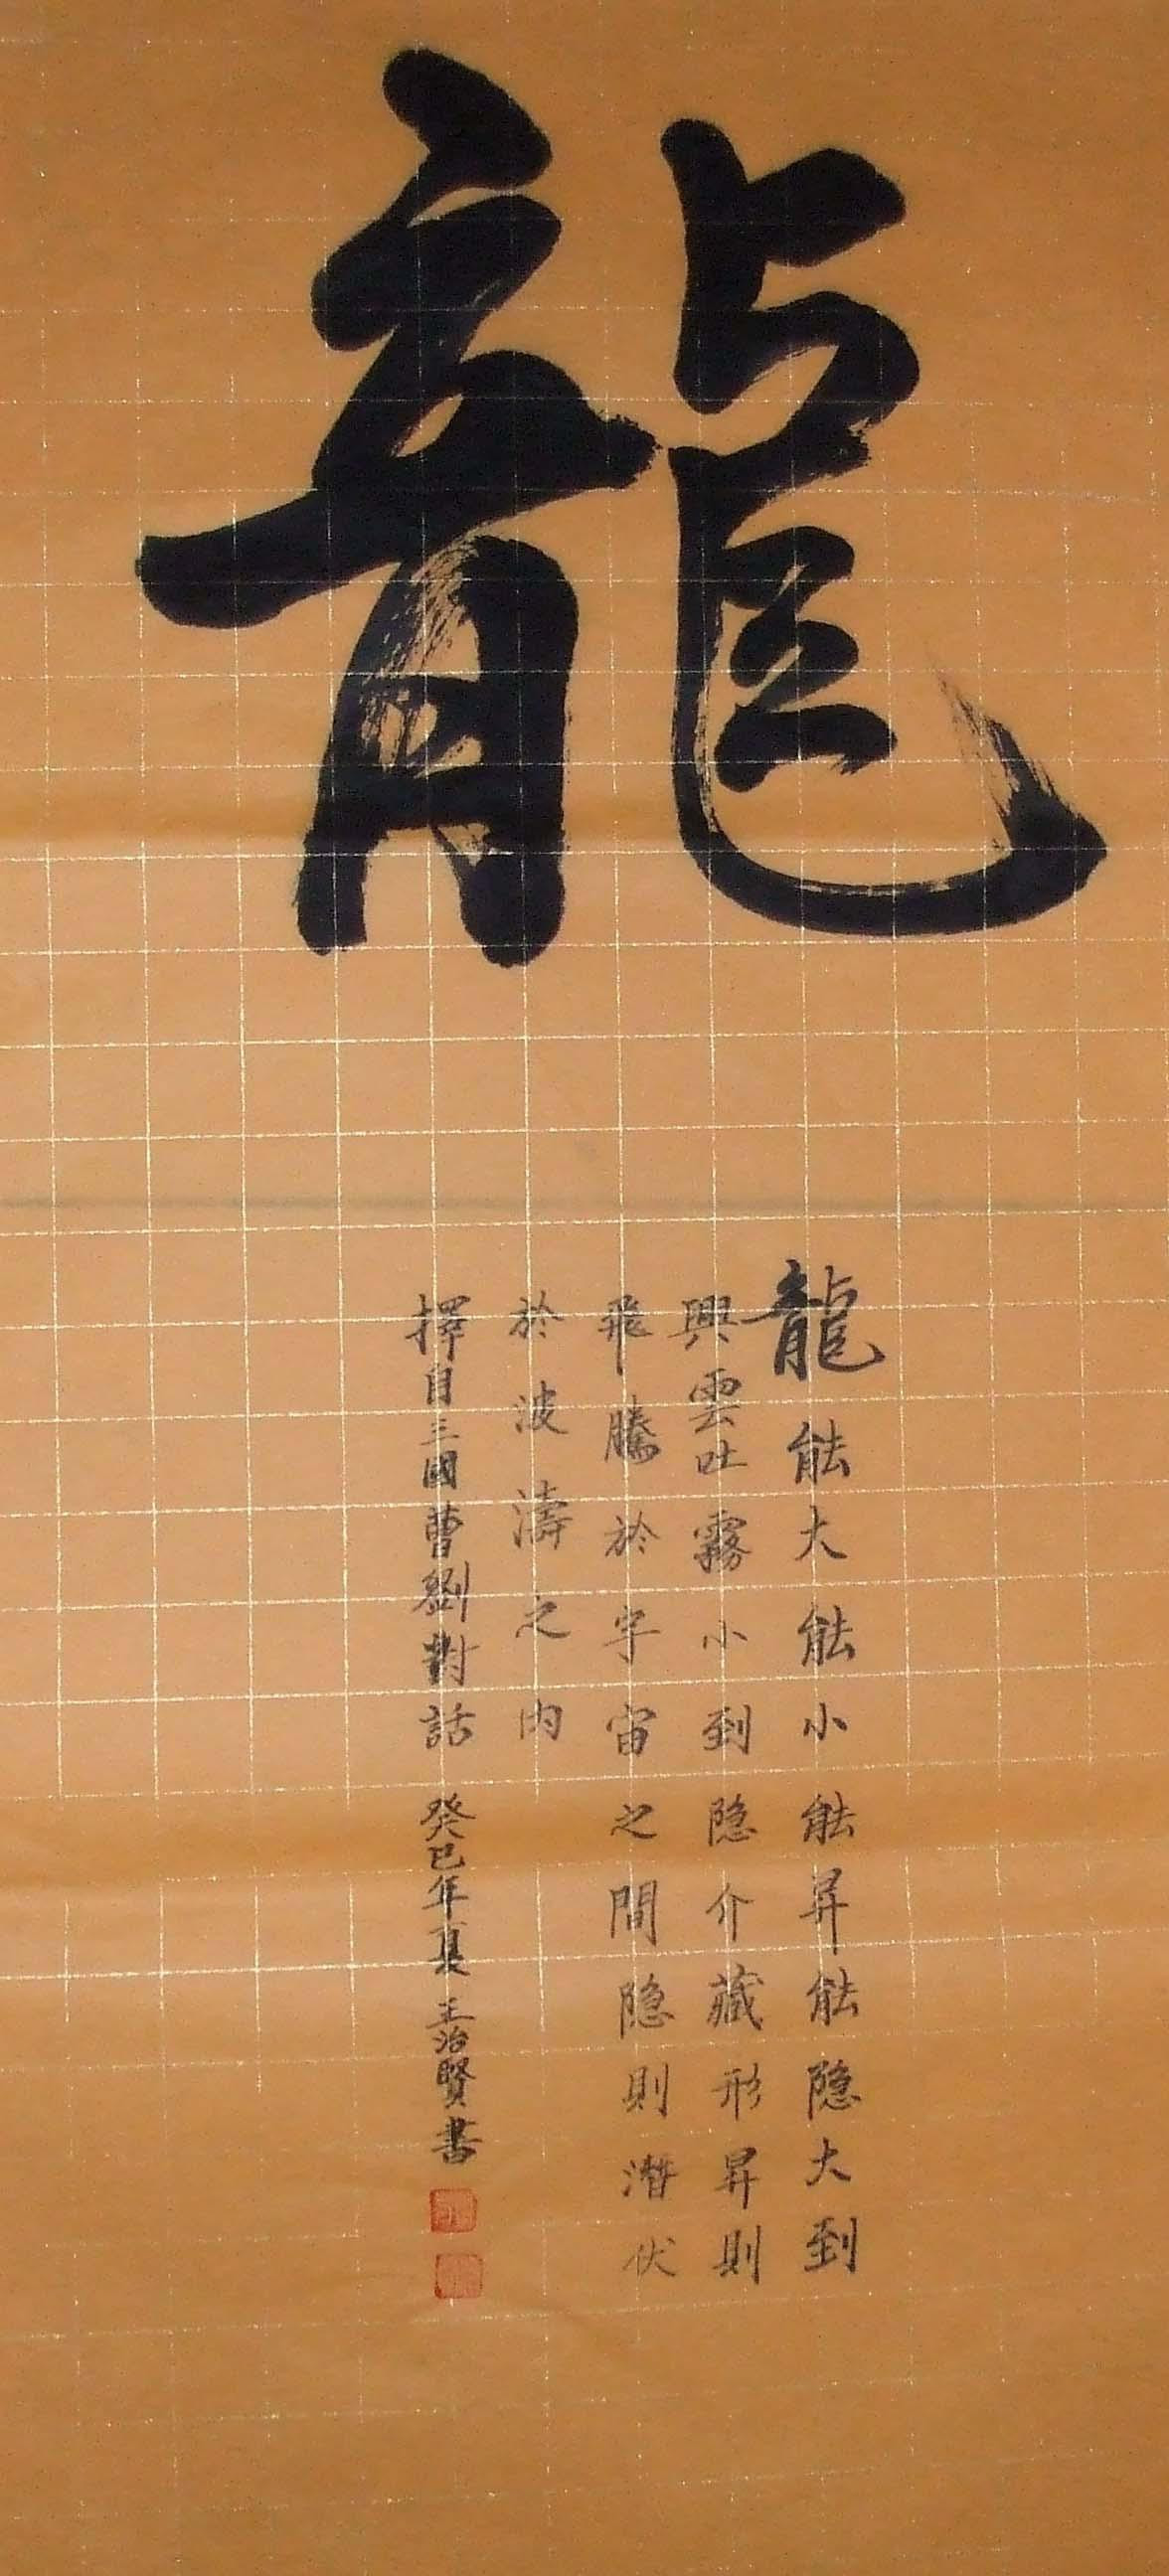 龍
龍能大能小能昇能隐大到
興雲吐霧小到隐介藏形昇則
飛騰於宇宙之間隐則潛伏
於波濤之内
擇自三國曹劉對話 癸巳年夏 王治賢書